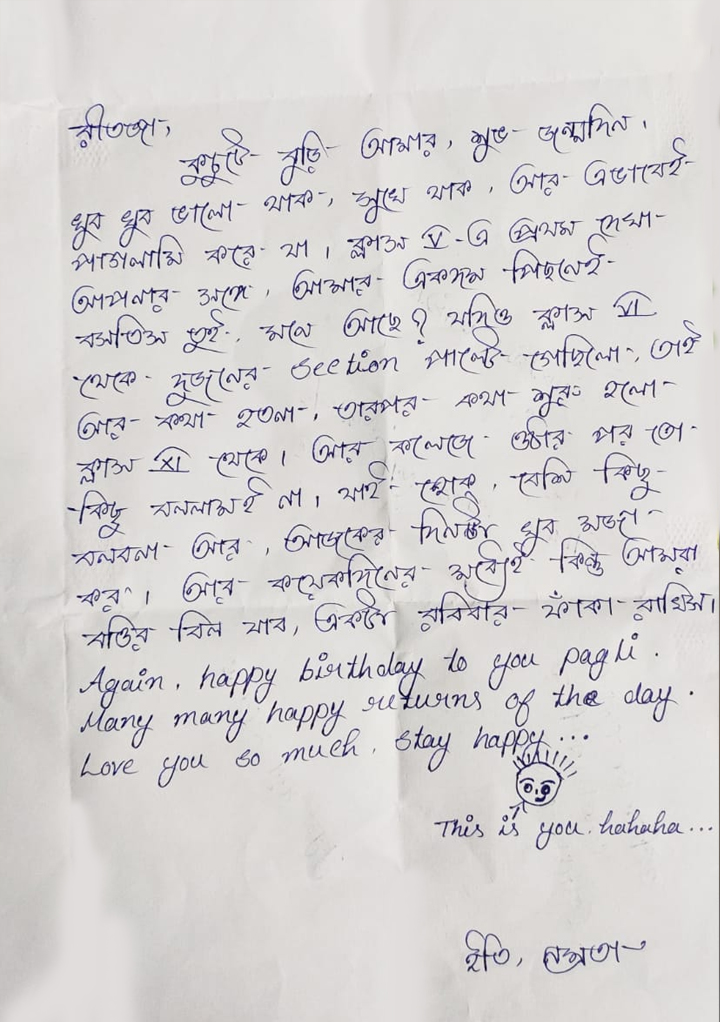 রীতজা,
কুচুটে বুড়ি আমার, শুভ জন্মদিন।
খুব খুব ভালো থাক, সুখে থাক, আর এভাবেই
পাগলামি করে যা। ক্লাস V-এ প্রথম দেখা
আপনার সঙ্গে, আমার একদম পিছনেই
বসতিস তুই, মনে আছে? যদিও ক্লাস VI
থেকে দুজনের section পাল্টে গেছিলো, তাই
আর কথা হতনা, তারপর কথা শুরু হলো
ক্লাস XI থেকে। আর কলেজে ওঠার পর তো
কিছু বললামই না। যাই হোক, বেশি কিছু
বলবনা আর, আজকের দিনটা খুব মজা
কর। আর কয়েকদিনের মধ্যেই কিন্তু আমরা
বিল যাব, একটা রবিবার ফাঁকা রাখিস।
Again, happy birthday to you pagli.
Many many happy returns of the day.
Love you so much, stay happy...
This is you. hahaha...
ইতি, নম্রতা